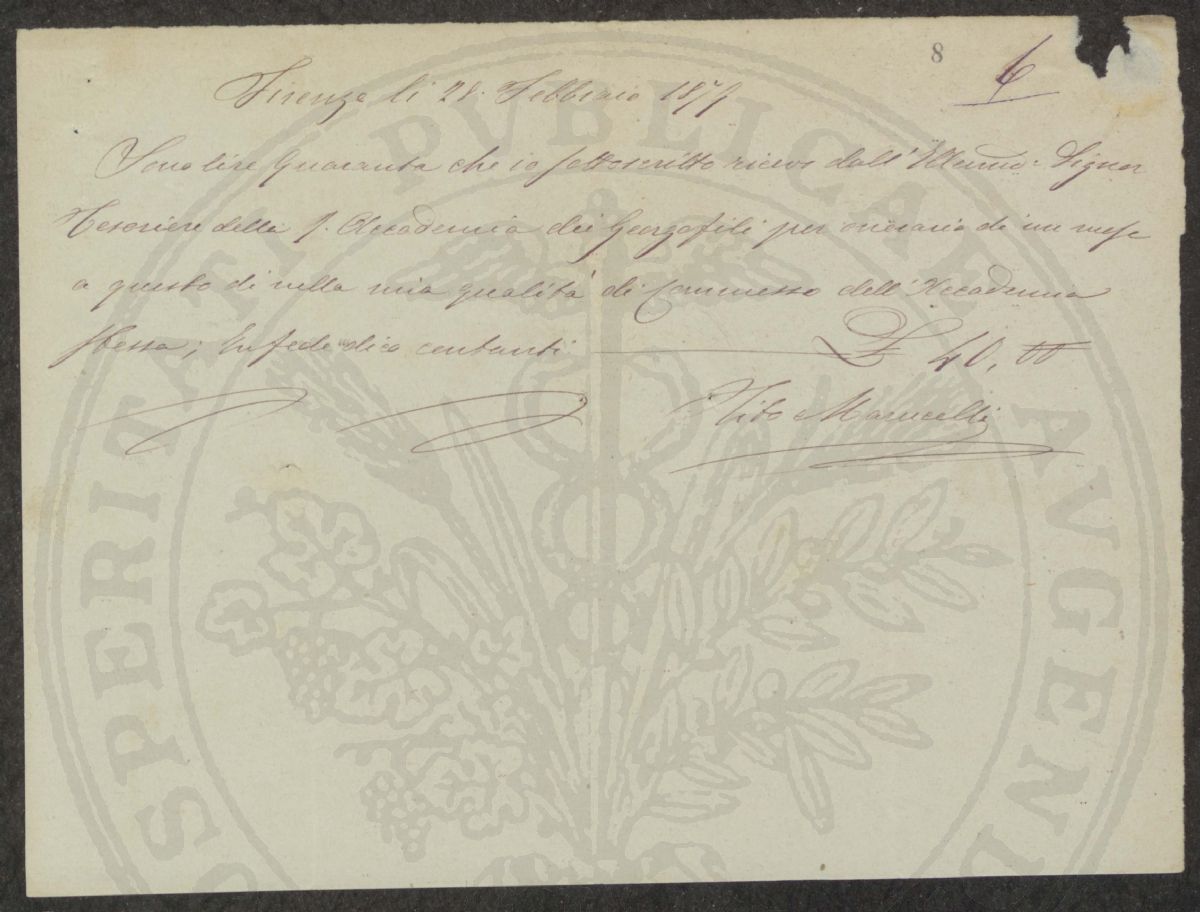 8
6
Firenze li 28. Febbraio 1877
Sono lire Quaranta che io sottoscritto ricevo dall' Illmo: Signor
Tesoriere della R. Accademia dei Georgofili per onorario di un mese
a questo dì nella mia qualità di Commesso dell' Accademia
stessa; In fede dico contanti £ 40, 00
Vito Marucelli
PROSPERITATI PUBLICAE AUGENDAE